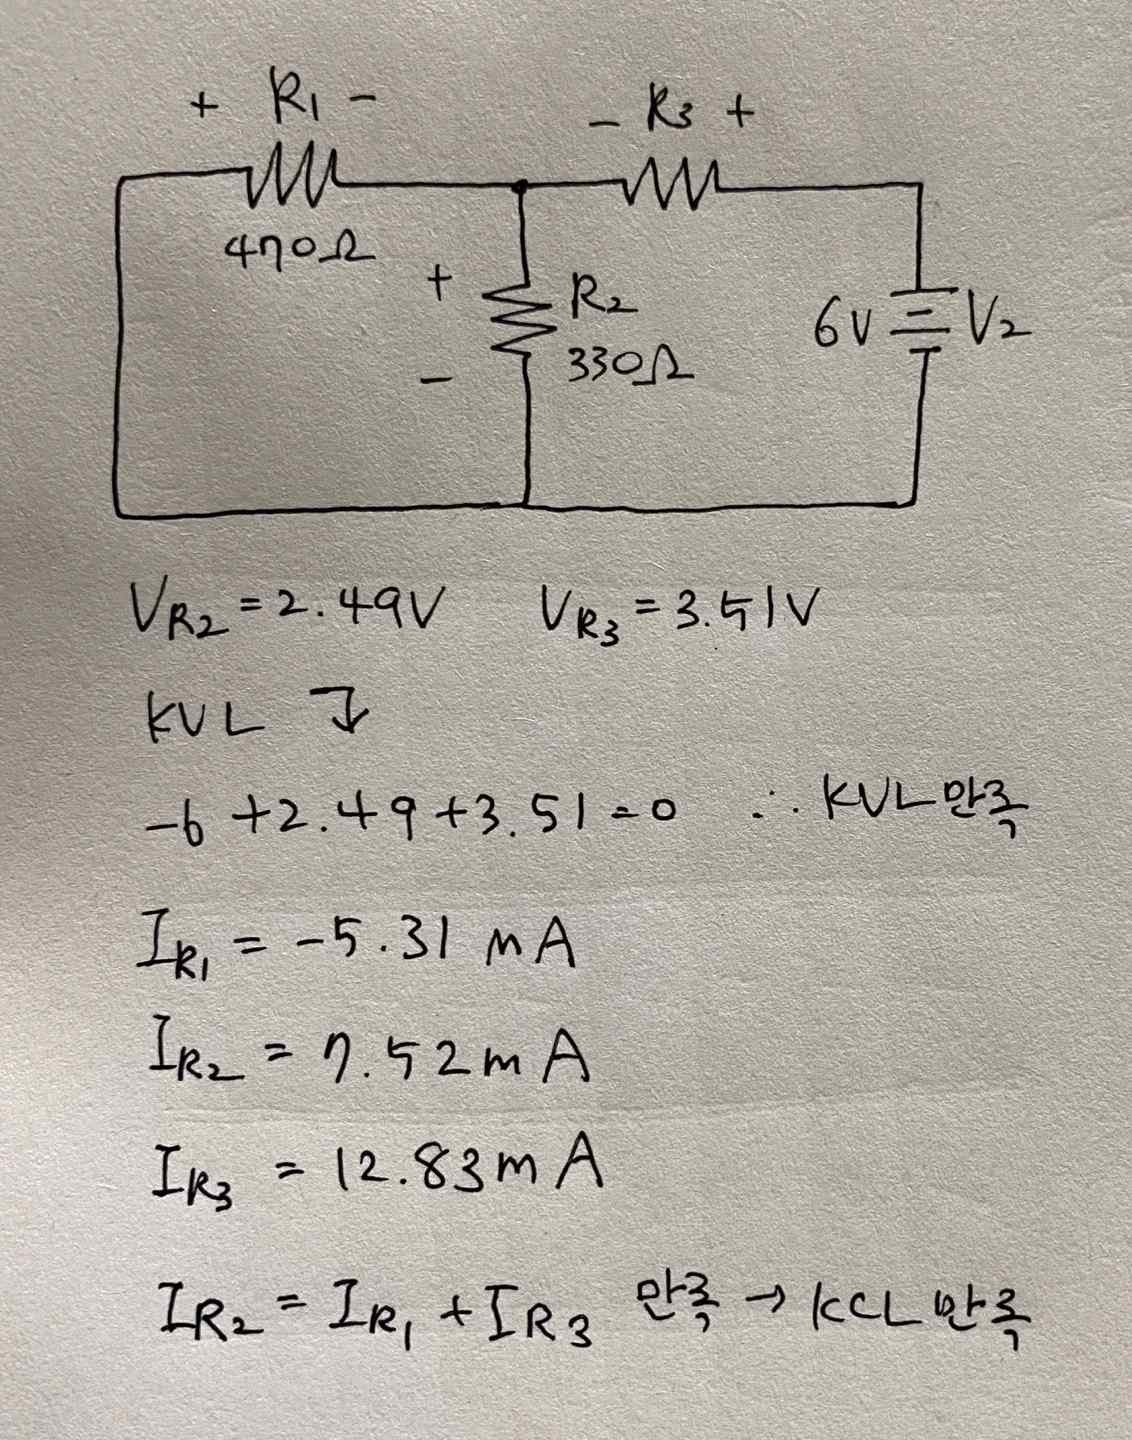 + R1 - - R3 +
470Ω
+ R2
6V V2
- 330Ω
VR2 = 2.49V VR3 = 3.51V
KVL
-6 +2.49 +3.51 = 0 ∴ KVL 만족
IR1 = -5.31 mA
IR2 = 7.52mA
IR3 = 12.83mA
IR2 = IR1 + IR3 만족 → KCL 만족